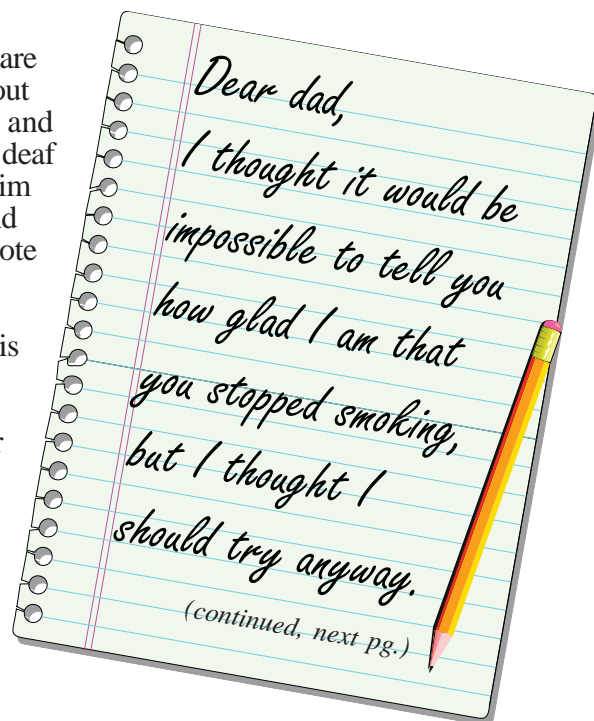 are
out
and
deaf
im
d
ote
is
r
Dear dad,
I thought it would be
impossible to tell you
how glad I am that
you stopped smoking,
but I thought I
should try anyway.
(continued, next pg.)